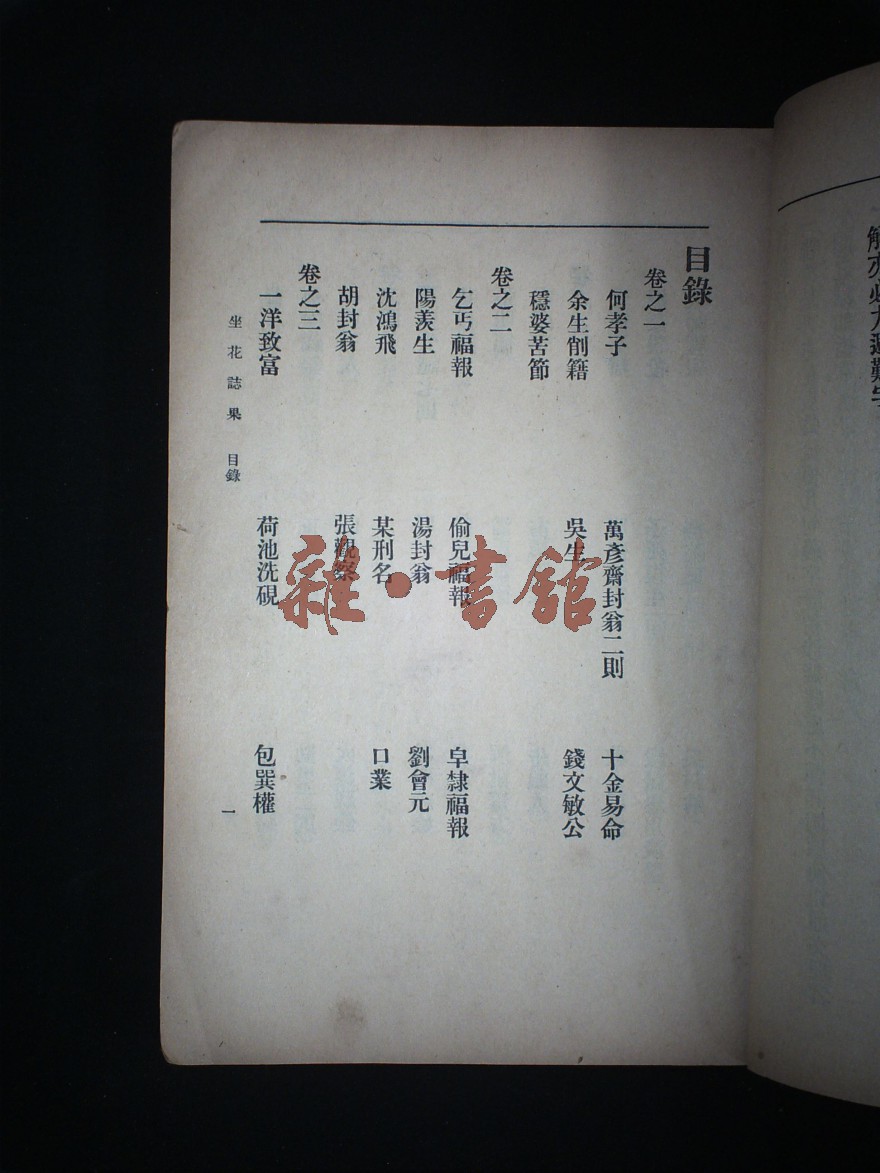 目錄
卷之一
何孝子 萬彥齋封翁二則 十金易命
余生削籍 吳生 錢文敏公
穩婆苦節
卷之二
乞丐福報 偷兒福報 皁隸福報
陽羨生 湯封翁 劉會元
沈鴻飛 某刑名 口業
胡封翁 張觀察
卷之三
一洋致富 荷池洗硯 包巽權
坐花誌果 目錄 一
雜·書館